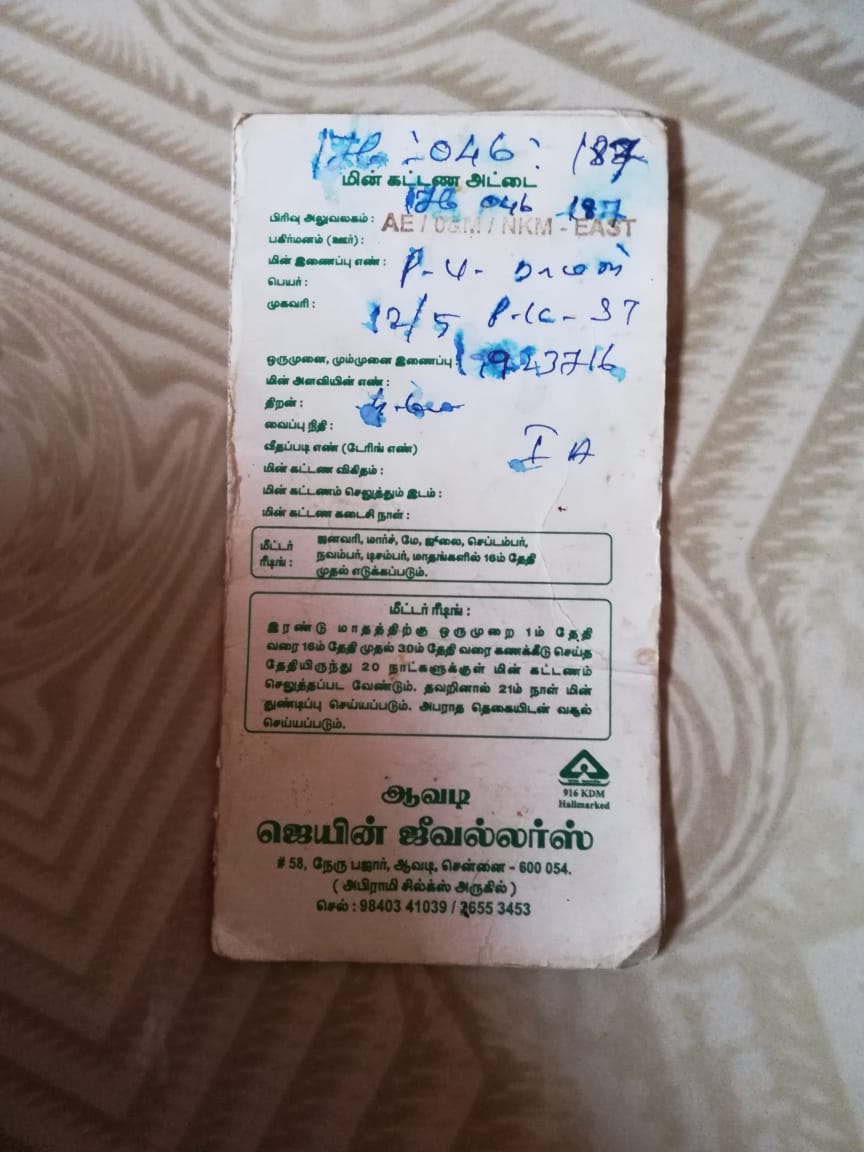 176 :046: 187
மின் கட்டண அட்டை
176 046 187
பிரிவு அலுவலகம் : AE / O&M / NKM - EAST
பகிர்மனம் (ஊர்) :
மின் இணைப்பு எண் : P-V-
பெயர் :
முகவரி : 12/5 P-K-ST
ஒருமுனை, மும்முனை இணைப்பு : 1923716
மின் அளவியின் எண் :
திறன் :
வைப்பு நிதி :
வீதப்படி எண் (டேரிங் எண்) I A
மின் கட்டண விகிதம் :
மின் கட்டணம் செலுத்தும் இடம் :
மின் கட்டண கடைசி நாள் :
மீட்டர் ரீடிங் : ஜனவரி, மார்ச், மே, ஜூலை, செப்டம்பர்,
நவம்பர், டிசம்பர், மாதங்களில் 16ம் தேதி
முதல் எடுக்கப்படும்.
மீட்டர் ரீடிங் :
இரண்டு மாதத்திற்கு ஒருமுறை 1ம் தேதி
வரை 16ம் தேதி முதல் 30ம் தேதி வரை கணக்கீடு செய்த
தேதியிருந்து 20 நாட்களுக்குள் மின் கட்டணம்
செலுத்தப்பட வேண்டும். தவறினால் 21ம் நாள் மின்
துண்டிப்பு செய்யப்படும். அபராத தெகையிடன் வசூல்
செய்யப்படும்.
916 KDM
Hallmarked
ஆவடி
ஜெயின் ஜீவல்லர்ஸ்
# 58, நேரு பஜார், ஆவடி, சென்னை - 600 054.
( அபிராமி சில்க்ஸ் அருகில் )
செல் : 98403 41039 / 2655 3453